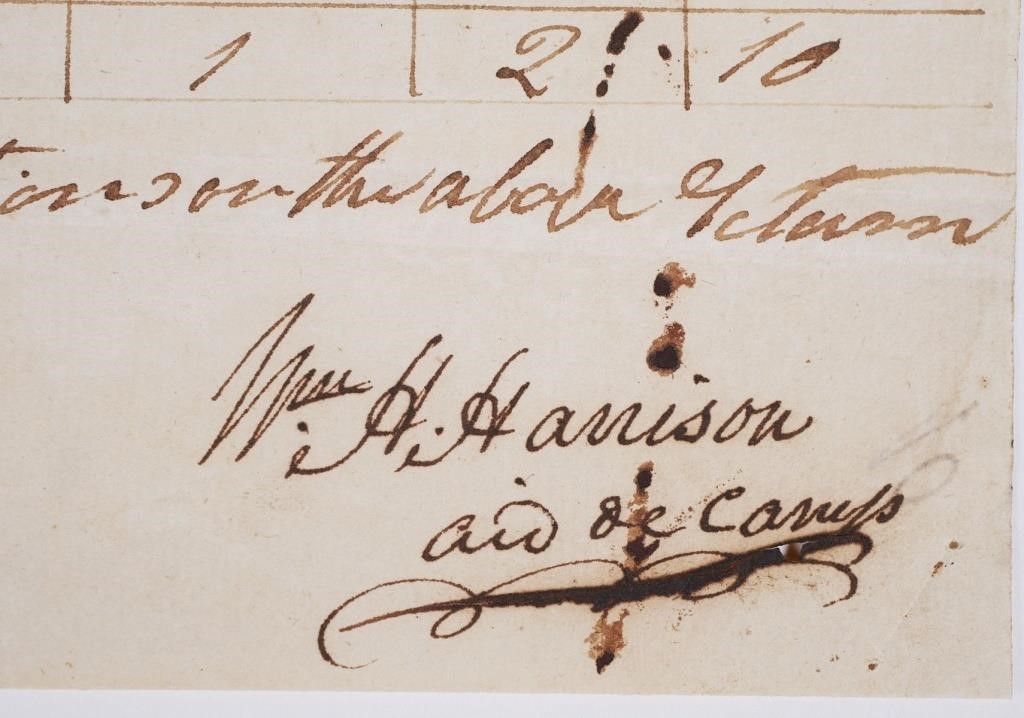 1 2 10
tions on the above Return
Wm. H. Harrison
aid de Camp